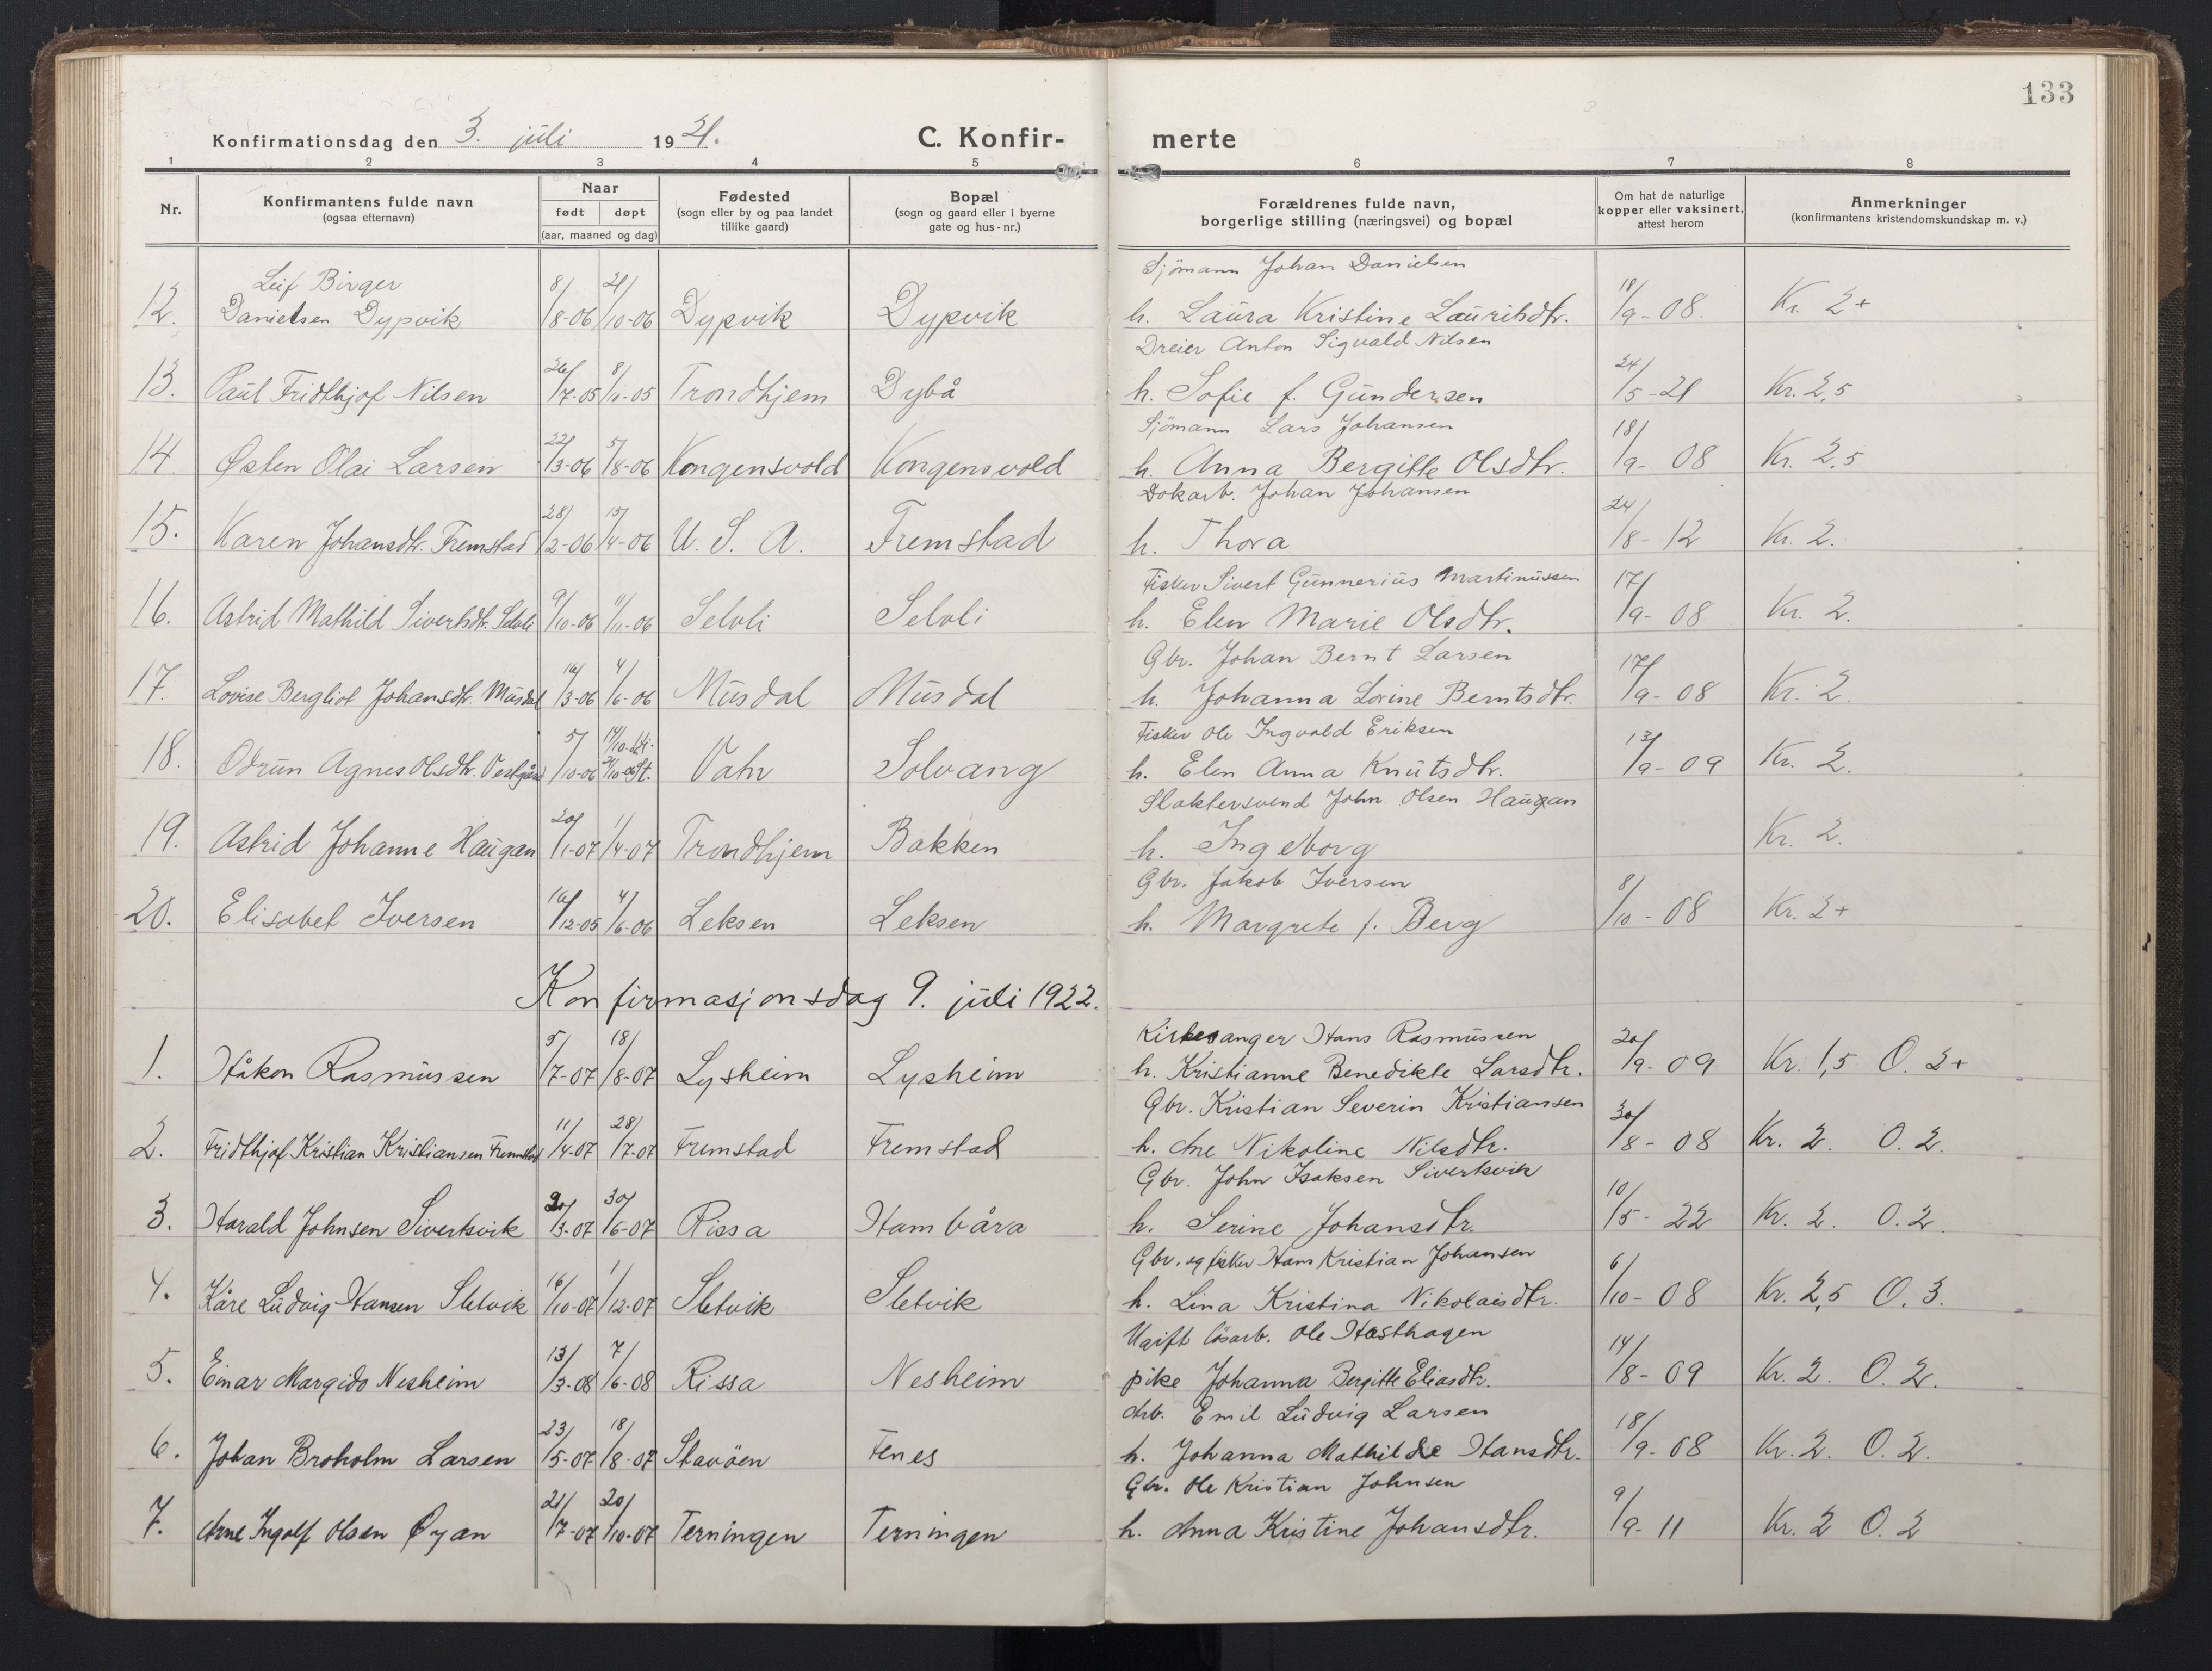 133
Konfirmationsdag den 3. juli 1921.
C. Konfir-merte
1 2 3 4 5 6 7 8
Nr.
Konfirmantens fulde navn
(ogsaa efternavn)
Naar
født døpt
(aar, maaned og dag)
Fødested
(sogn eller by og paa landet
tillike gaard)
Bopæl
(sogn og gaard eller i byerne
gate og hus-nr.)
Forældrenes fulde navn,
borgerlige stilling (næringsvei) og bopæl
Om hat de naturlige
kopper eller vaksinert,
attest herom
Anmerkninger
(konfirmantens kristendomskundskap m. v.)
Leif Birger 8/ 21/ Sjömann Johan Danielsen
12. Danielsen Dypvik /8-06 /10-06 Dypvik Dypvik h. Laura Kristine Lauritsdtr. 18/9-08. Kr. 2+
Dreier Anton Sigvald Nilsen
13. Paul Fridthjof Nilsen 26/7-05 8/11-05 Trondhjem Dybå h. Sofie f. Gundersen 24/5-21 Kr. 2,5
Sjömann Lars Johansen
14. Østen Olai Larsen 22/3-06 5/8-06 Kongensvold Kongensvold h. Anna Bergitte Olsdtr. 18/9-08 Kr. 2,5
Dokarb. Johan Johansen
15. Karen Johansdtr. Fremstad 28/2-06 15/4-06 U. S. A. Fremstad h. Thora 24/8-12 Kr. 2.
Fisker Sivert Gunnerius Martinussen
16. Astrid Mathild Sivertsdtr. Selvli 9/10-06 11/11-06 Selvli Selvli h. Elen Marie Olsdtr. 17/9-08 Kr. 2.
Gbr. Johan Bernt Larsen
17. Lovise Bergliot Johansdtr. Musdal 16/3-06 4/6-06 Musdal Musdal h. Johanna Lorine Berntsdtr. 17/9-08 Kr. 2.
Fisker Ole Ingvald Eriksen
18. Odrun Agnes Olsdtr. 5/10-06 Vahr Solvang h. Elen Anna Knutsdtr. 13/9-09 Kr. 2.
Slaktersvend John Olsen Haugan
19. Astrid Johanne Haugan 20/1-07 1/4-07 Trondhjem Bakken h. Ingeborg Kr. 2.
Gbr. Jakob Iversen
20. Elisabet Iversen 16/12-05 4/6-06 Leksen Leksen h. Margrete f. Berg 8/10-08 Kr. 2+
Konfirmasjonsdag 9. juli 1922.
Kirkesanger Hans Rasmussen
1. Håkon Rasmussen 5/7-07 18/8-07 Lysheim Lysheim h. Kristianne Benedikte Larsdtr. 20/9-09 Kr. 1,5 O. 2+
Gbr. Kristian Severin Kristiansen
2. Fridthjof Kristian Kristiansen Fremstad 11/4-07 28/7-07 Fremstad Fremstad h. Ane Nikoline Nilsdtr. 30/8-08 Kr. 2. O. 2.
Gbr. John Isaksen Sivertsvik
3. Harald Johnsen Sivertsvik /3-07 30/6-07 Rissa Hambåra h. Serine Johansdtr. 10/5-22 Kr. 2. O. 2.
Gbr. og fisker Hans Kristian Johansen
4. Kåre Ludvig Hansen Sletvik 16/10-07 1/12-07 Sletvik Sletvik h. Lina Kristina Nikolaisdtr. 6/10-08 Kr. 2,5 O. 3.
Ugift lösarb. Ole Hasthagen
5. Einar Margido Nesheim 13/3-08 7/6-08 Rissa Nesheim pike Johanna Bergitte Eliasdtr. 14/8-09 Kr. 2. O. 2.
Arb. Emil Ludvig Larsen
6. Johan Broholm Larsen 23/5-07 18/8-07 Stavöen Fenes h. Johanna Mathilde Hansdtr. 18/9-08 Kr. 2. O. 2.
Gbr. Ole Kristian Johnsen
7. Arne Ingolf Olsen Øyan 21/7-07 20/10-07 Terningen Terningen h. Anna Kristine Johansdtr. 9/9-11 Kr. 2 O. 2